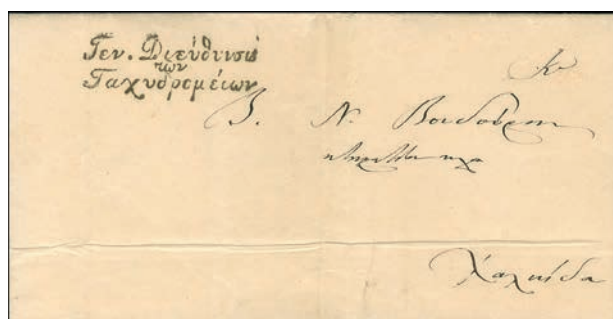 Γεν. Διεύθινσις
των
Ταχυδρομείων
Κν
Β. Ν. Βουδούρην
Χαλκίδα